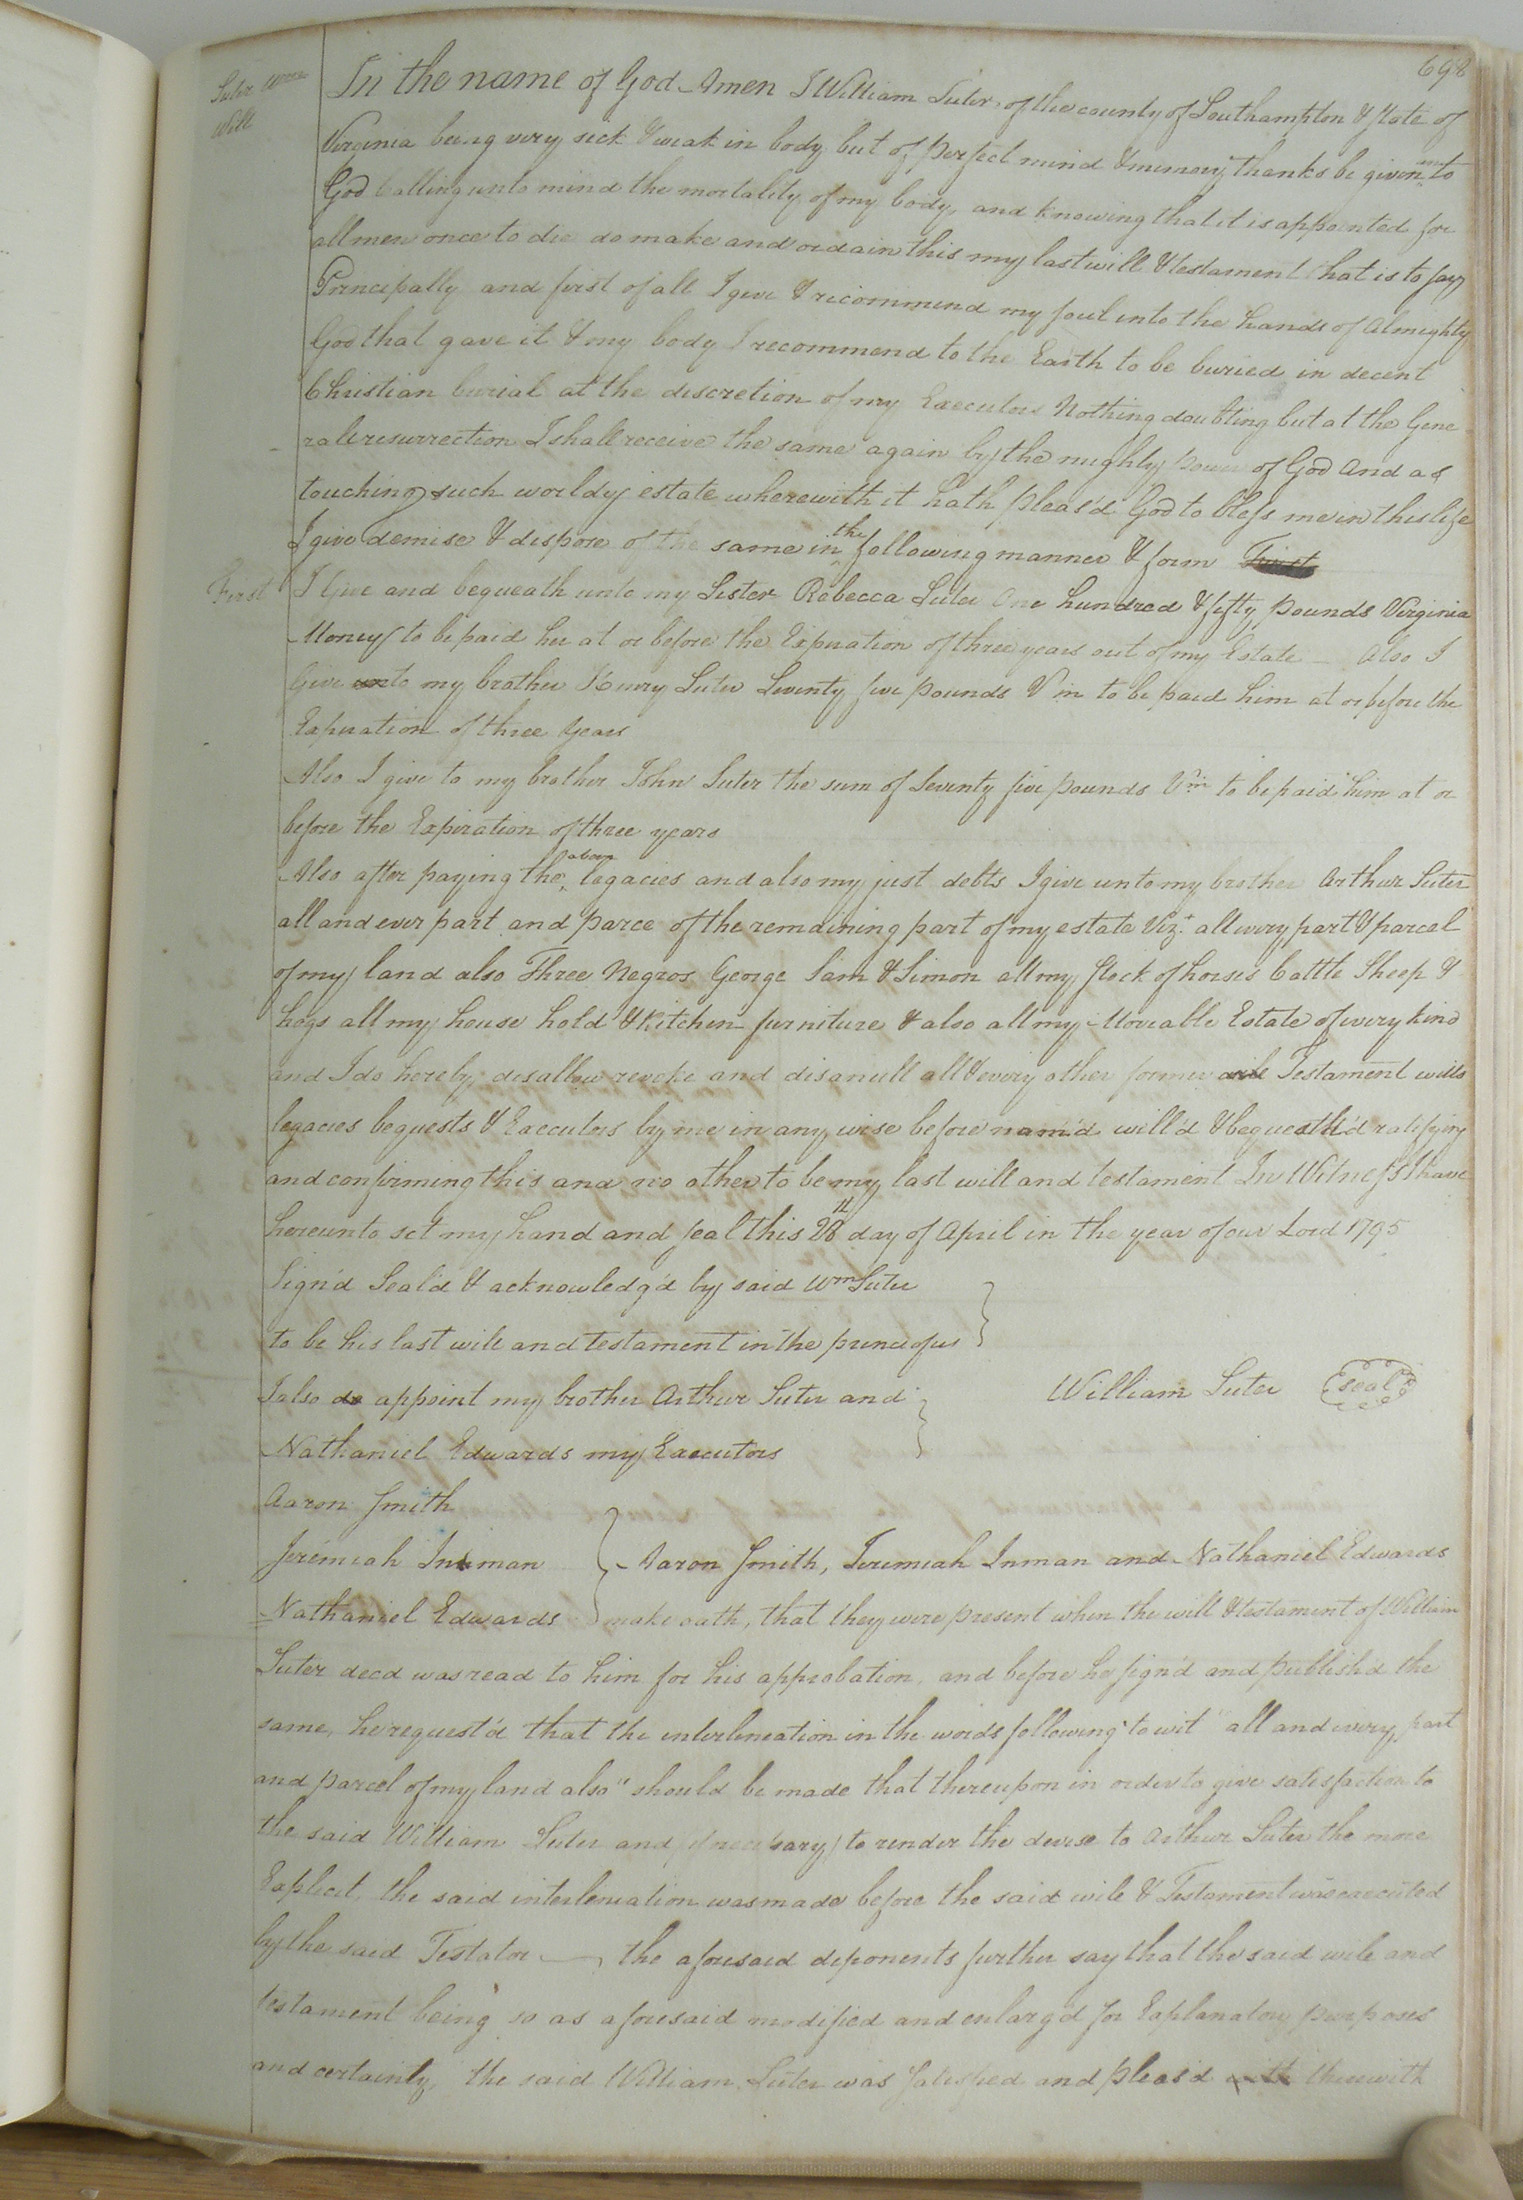 698
Suter Wm
Will
In the name of God Amen I William Suter of the county of Southampton & State of
Virginia being very sick & weak in body but of perfect mind & memory thanks be given unto
God Calling unto mind the mortality of my body, and knowing that it is appointed for
all men once to die do make and ordain this my last will & testament that is to say
Principally and first of all I give & recommend my soul into the hands of Almighty
God that gave it & my body I recommend to the Earth to be buried in decent
Christian burial at the discretion of my Executors Nothing doubting but at the Gene
ral resurrection I shall receive the same again by the mighty Power of God And as
touching such worldy estate wherewith it hath pleas'd God to bless me in this life
I give demise & dispose of the same in the following manner & form First
First I Give and bequeath unto my Sister Rebecca Suter One hundred & fifty pounds Virginia
Money to be paid her at or before the Expiration of three years out of my Estate Also I
Give unto my brother Henry Suter Seventy five pounds Vm to be paid him at or before the
Expiration of three years
Also I give to my brother John Suter the sum of Seventy five pounds Vm to be paid him at or
before the Expiration of three years
Also after paying the above legacies and also my just debts I give unto my brother Arthur Suter
all and ever part and parce of the remaining part of my estate Vizt all every part & parcel
of my land also Three Negros George Sam & Simon all my stock of horses Cattle Sheep &
hogs all my house hold & Kitchen furniture & also all my Moveable Estate of every kind
and I do hereby disallow revoke and disanull all & every other former will Testament wills
legacies bequests & Executors by me in any wise before nam'd will'd & bequeath'd ratifying
and confirming this and no other to be my last will and testament In Witness I have
hereunto set my hand and seal this 28th day of April in the year of our Lord 1795
Sign'd Seal'd & acknowledg'd by said Wm Suter
to be his last will and testament in the presence of us
I also do appoint my brother Arthur Suter and
William Suter seal
Nathaniel Edwards my Executors
Aaron Smith
Jeremiah Inman Aaron Smith, Jeremiah Inman and Nathaniel Edwards
Nathaniel Edwards make oath, that they were present when the will & testament of William
Suter decd was read to him for his approbation, and before he sign'd and publish'd the
same, he request'd that the interlineation in the words following to wit "all and every part
and parcel of my land also" should be made that thereupon in order to give satisfaction to
the said William Suter and (if necessary) to render the devise to Arthur Suter the more
Explicit, the said interlineation was made before the said will & Testament was executed
by the said Testator the aforesaid deponents further say that the said will and
testament being so as aforesaid modified and enlarg'd for Explanatory purposes
and certainty, the said William Suter was satisfied and pleas'd with therewith